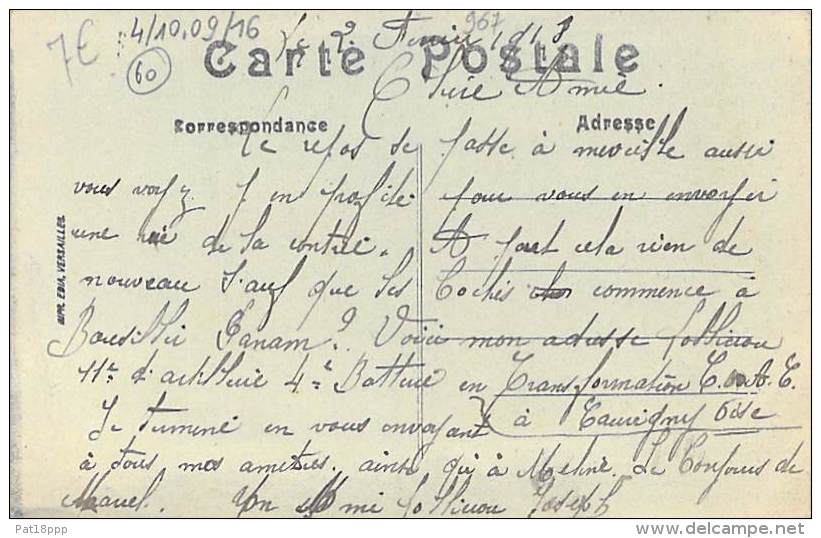 4/10.09/16
7€
60
967
Le 2 Février 191
Carte Postale
Chère Amie.
Correspondance
Adresse
Le repos se passe à merveille aussi
vous voyez j en profite pour vous en envoyer
une vue de la contrée. A part cela rien de
nouveau sauf que les Boches commence à
Bousiller Panam? Voici mon adresse
11e d'artillerie 4e Batterie en Transformation
à Tauvigny Oise
Je termine en vous envoyant
à tous mes amitiés. ainsi qu'à Le
Marcel. Un Ami Joseph
IMPR. EDIA, VERSAILLES
Pat18ppp
delcampe.net